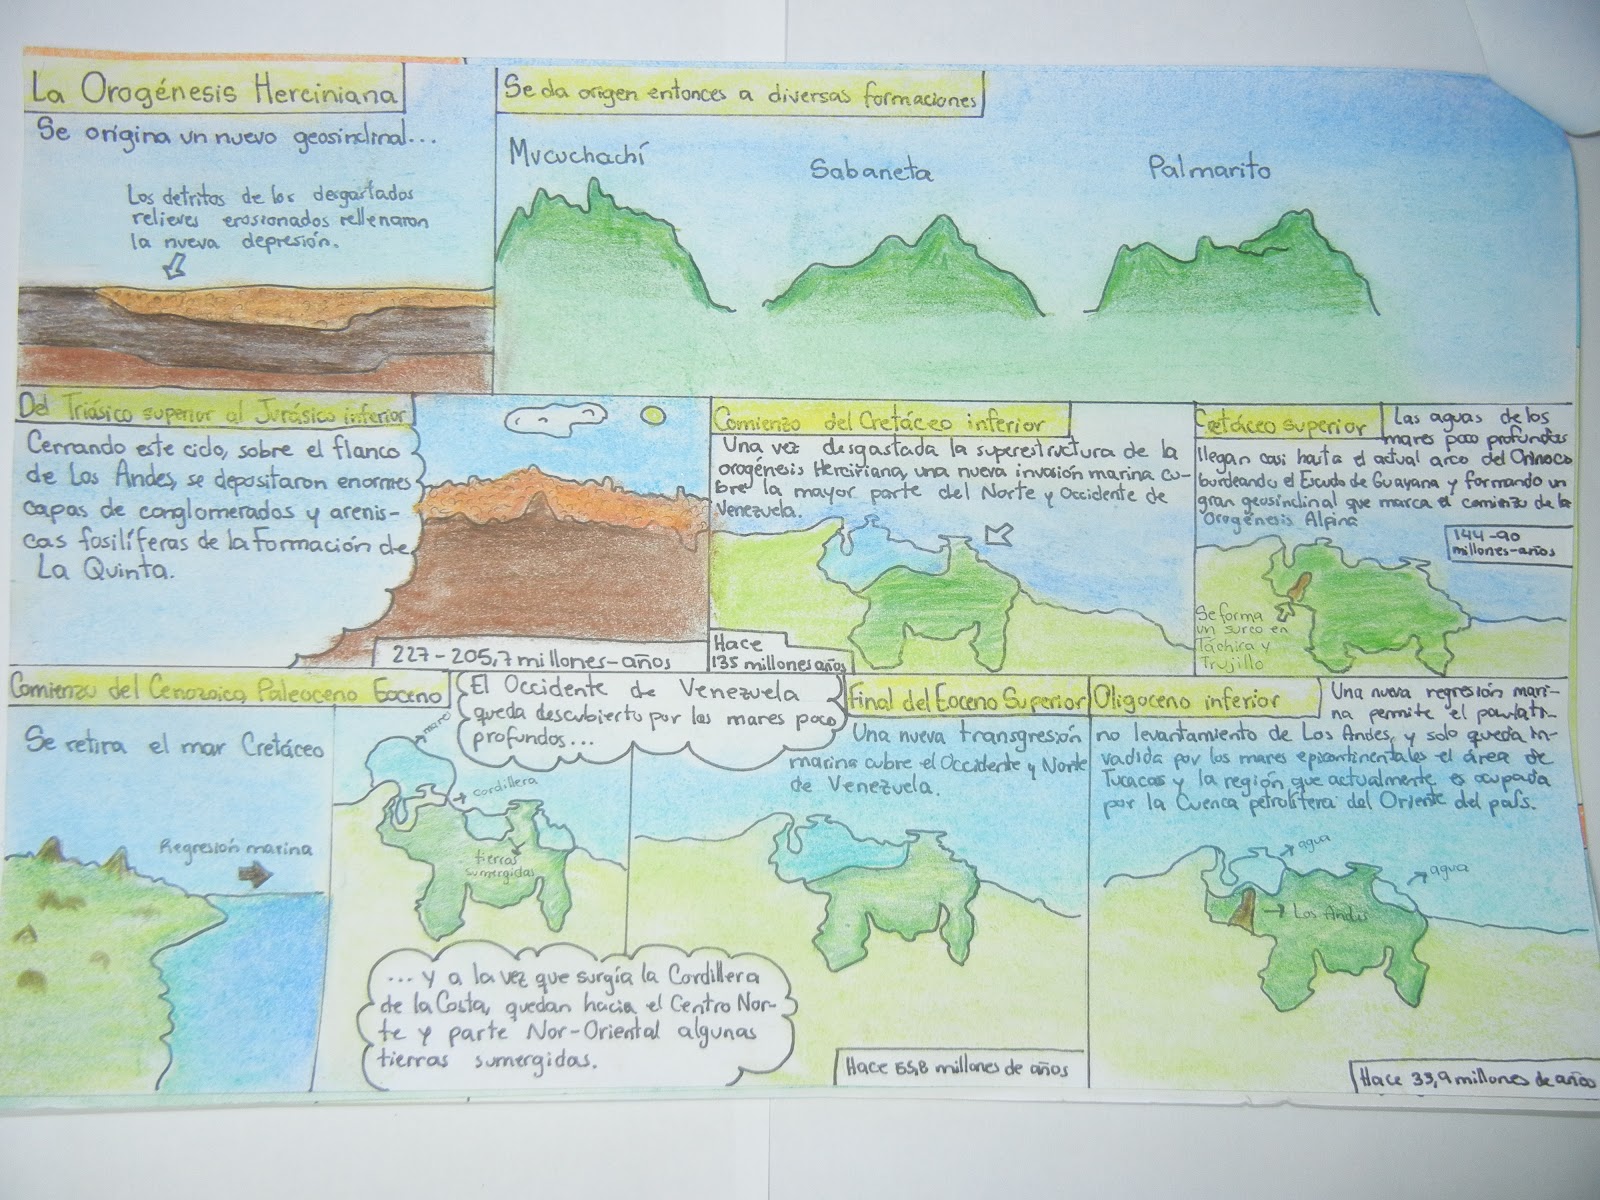 La Orogénesis Herciniana
Se origina un nuevo geosinclinal...
Los detritos de los desgastados
relieves erosionados rellenaron
la nueva depresión.
Se da origen entonces a diversas formaciones
Mucuchachí
Sabaneta
Palmarito
Del Triásico superior al Jurásico inferior
Cerrando este ciclo, sobre el flanco
de Los Andes, se depositaron enormes
capas de conglomerados y arenis-
cas fosilíferas de la Formación de
La Quinta.
227-205,7 millones-años
Comienzo del Cretáceo inferior
Una vez desgastada la superestructura de la
orogénesis Herciniana, una nueva invasión marina cu-
bre la mayor parte del Norte y Occidente de
Venezuela.
Hace
135 millones años
Cretáceo superior
Las aguas de los
mares poco profundos
llegan casi hasta el actual arco del Orinoco
bordeando el Escudo de Guayana y formando un
gran geosinclinal que marca el comienzo de la
Orogénesis Alpina
144-90
millones-años
Se forma
un surco en
Táchira y
Trujillo
Comienzo del Cenozoico, Paleoceno Eoceno
Se retira el mar Cretáceo
Regresión marina
El Occidente de Venezuela
queda descubierto por los mares poco
profundos...
mares
cordillera
tierras
sumergidas
... y a la vez que surgía la Cordillera
de la Costa, quedan hacia el Centro Nor-
te y parte Nor-Oriental algunas
tierras sumergidas.
Final del Eoceno Superior
Una nueva transgresión
marina cubre el Occidente y Norte
de Venezuela.
Hace 55,8 millones de años
Oligoceno inferior
Una nueva regresión mari-
na permite el paulati-
no levantamiento de Los Andes, y solo queda in-
vadida por los mares epicontinentales el área de
Tucacas y la región que actualmente es ocupada
por la Cuenca petrolífera del Oriente del país.
agua
agua
Los Andes
Hace 33,9 millones de años